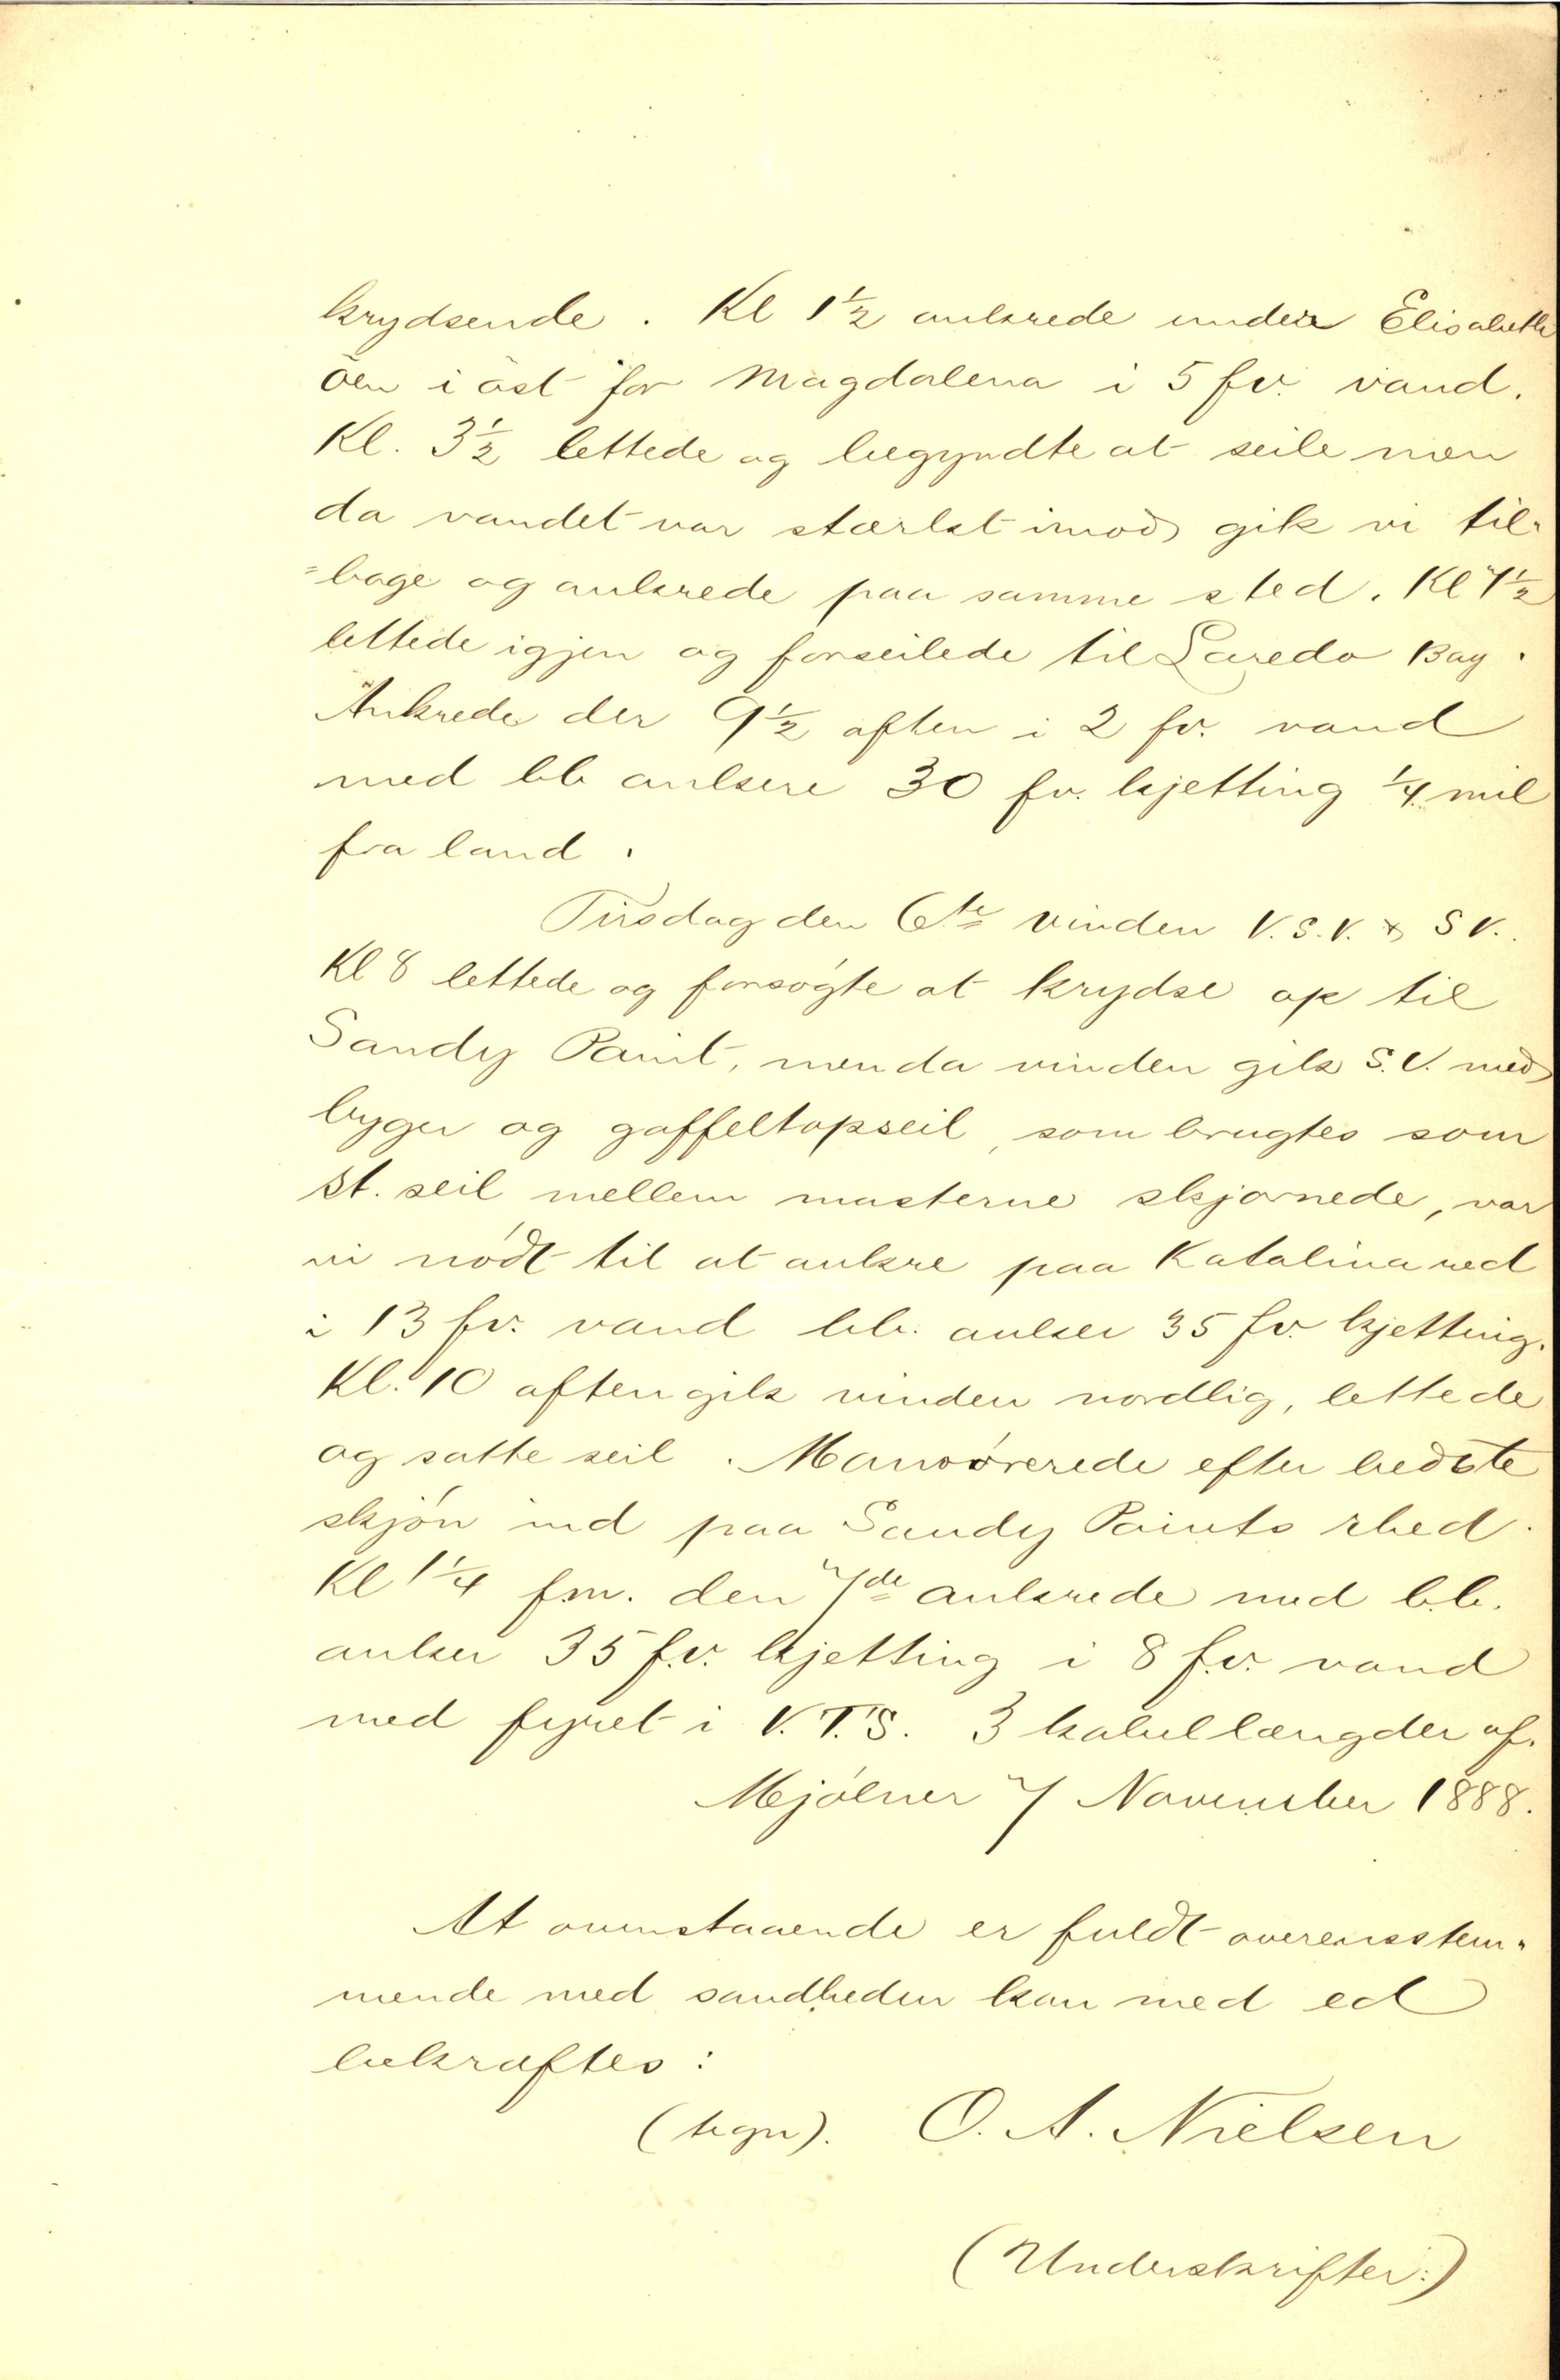 krydsende. Kl 1½ ankrede under Elisabeth
öen i öst for Magdalena i 5 fv. vand.
Kl. 3½ lettede og begyndte at seile men
da vandet var stærkt imod gik vi til-
=bage og ankrede paa samme sted. Kl 7½
lettede igjen og forseilede til Laredo Bay.
Ankrede der 9½ aften i 2 fv. vand
med bb ankere 30 fv. kjetting ¼ mil
fra land.
Tirsdag den 6te vinden V.S.V. & SV.
Kl 8 lettede og forsögte at krydse op til
Sandy Point, men da vinden gik S.V. med
byger og gaffeltopseil, som brugtes som
st. seil mellem masterne skjörnede, var
vi nödt til at ankre paa Katalina red
i 13 fv. vand bb. anker 35 fv. kjetting.
Kl. 10 aften gik vinden nordlig, lettede
og satte seil. Manövrerede efter bedste
skjön ind paa Sandy Points rhed.
Kl 1¼ fm. den 7de ankrede med b.b.
anker 35 f.v. kjetting i 8 f.v. vand
med fyret i V.T.S. 3 kabellængder af.
Mjölner 7 November 1888.
At ovenstaaende er fuldt overensstem-
mende med sandheden kan med ed
bekræftes:
(tegn). O. A. Nielsen
(Underskrifter:)